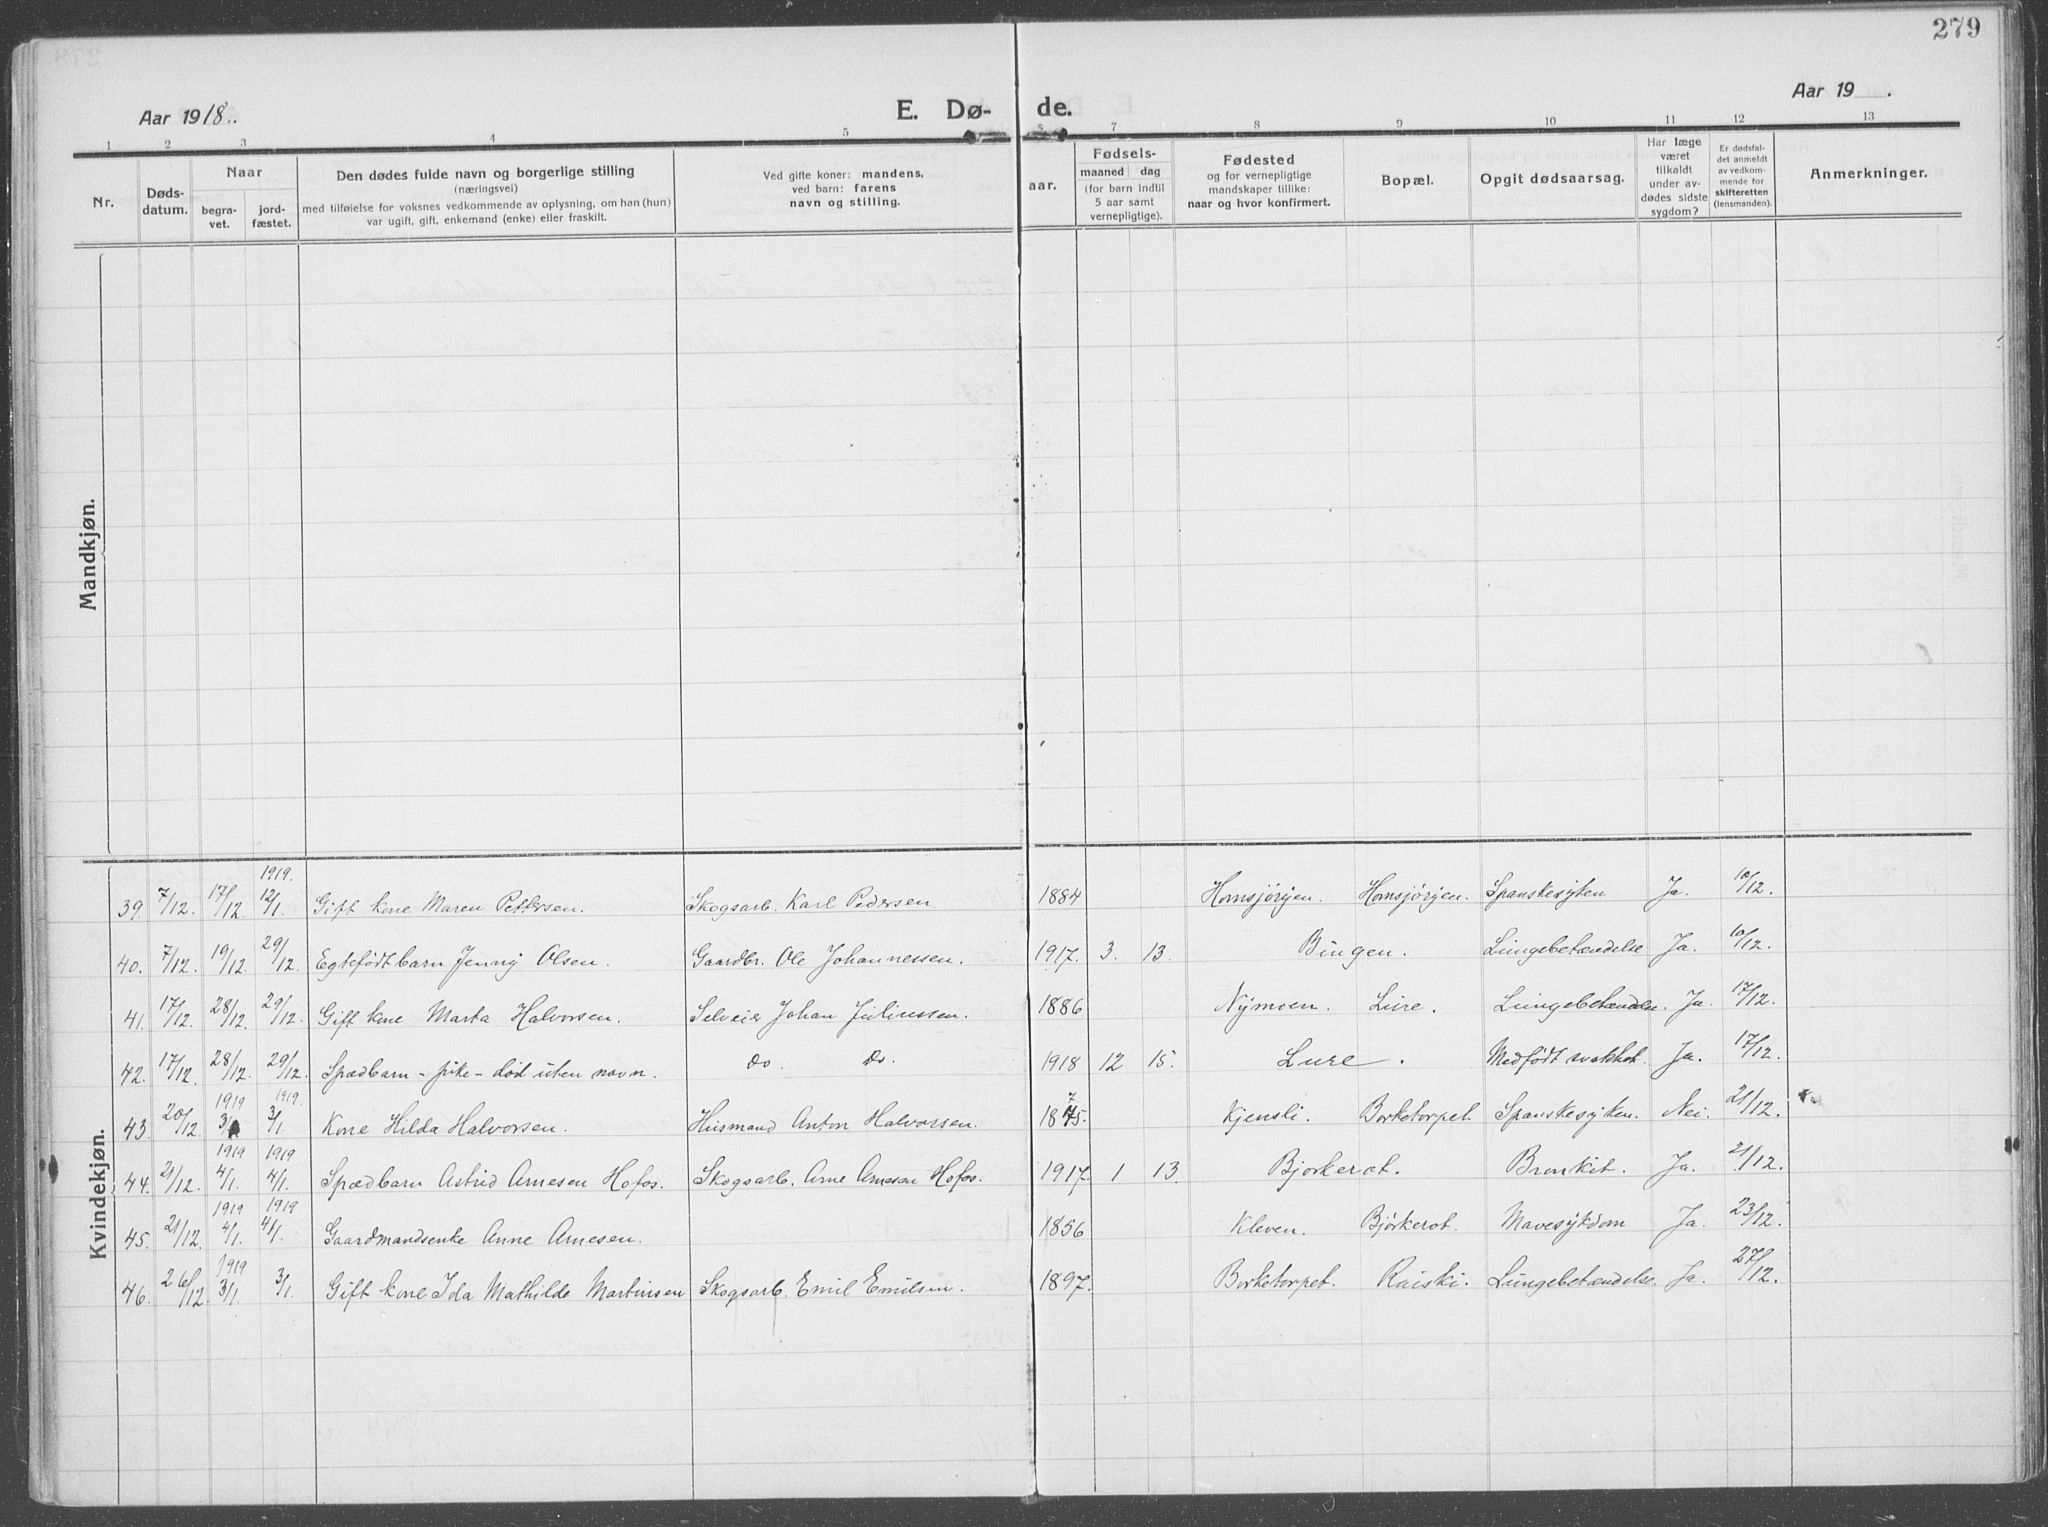 279
Aar 1918.
E. Dø-
de.
Aar 19 .
1 2 3 4 5 6 7 8 9 10 11 12 13
Nr.
Døds-
datum.
Naar
begra-
vet.
jord-
fæstet.
Den dødes fulde navn og borgerlige stilling
(næringsvei)
med tilføielse for voksnes vedkommende av oplysning, om han (hun)
var ugift, gift, enkemand (enke) eller fraskilt.
Ved gifte koner: mandens,
ved barn: farens
navn og stilling.
aar.
Fødsels-
maaned dag
(for barn indtil
5 aar samt
vernepligtige).
Fødested
og for vernepligtige
mandskaper tillike:
naar og hvor konfirmert.
Bopæl.
Opgit dødsaarsag.
Har læge
været
tilkaldt
under av-
dødes sidste
sygdom?
Er dødsfal-
det anmeldt
av vedkom-
mende for
skifteretten
(lensmanden).
Anmerkninger.
Mandkjøn.
Kvindekjøn.
1919.
39. 7/12. 17/12. 12/1. Gift kone Maren Pettersen. Skogsarb. Karl Pedersen. 1884 Homsjörjen. Homsjörjen. Spanskesyken Ja. 10/12.
40. 7/12. 19/12. 29/12. Egtefödt barn Jenny Olsen. Gaardbr. Ole Johannessen. 1917. 3. 13. Bingen. Lungebetændelse Ja. 10/12.
41. 17/12. 28/12. 29/12. Gift kone Marta Halvorsen. Selveier Johan Juliussen. 1886 Nymoen. Lure. Lungebetændelse. Ja. 17/12.
42. 17/12. 28/12. 29/12. Spædbarn - pike - död uten navn. do. do. 1918 12 15. Lure. Medfödt svakhet. Ja. 17/12.
1919 1919.
43. 20/12. 3/1 3/1. Kone Hilda Halvorsen. Husmand Anton Halvorsen. 1875. Kjensli. Borketorpet. Spanskesyken. Nei. 21/12.
1919 1919
44. 21/12. 4/1. 4/1. Spædbarn Astrid Arnesen Hofos. Skogsarb. Arne Arnesen Hofos. 1917. 1 13. Bjorkerot. Bronkit. Ja. 21/12.
1919 1919
45. 21/12. 4/1. 4/1. Gaardmandsenke Anne Arnesen. 1856 Kleven. Bjørkerot. Mavesykdom Ja. 23/12.
1919
46. 26/12. 3/1. 3/1. Gift kone Ida Mathilde Martinsen Skogsarb. Emil Emilsen. 1897. Borketorpet. Raiski. Lungebetændelse. Ja. 27/12.